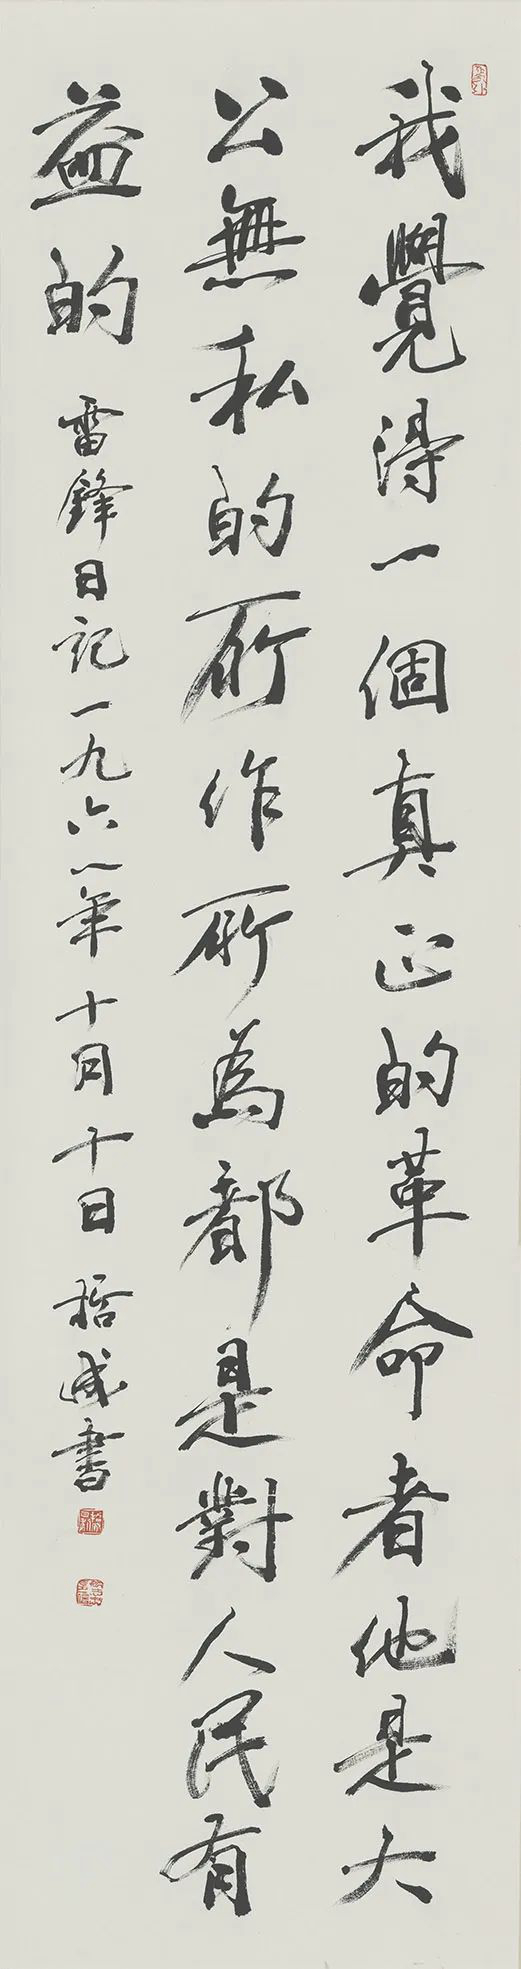 我覺得一個真正的革命者他是大
公無私的所作所為都是對人民有
益的
雷鋒日記一九六一年十月十日 哲成書